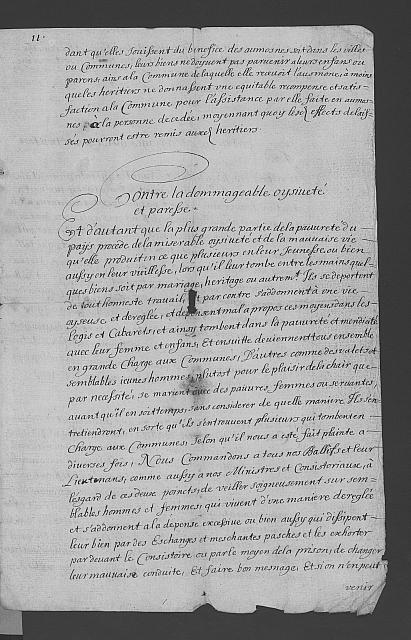 11.
dant qu'elles Jouissent du benefice des aumosnes soit dans les villes
ou Communes, leurs biens ne doijuent pas parvenir a leurs enfans ou
parens, ains a la Commune de laquelle elle recevoit l'ausmone, à moins
que les heritiers ne donnassent vne equitable recompense et satis-
faction a la Commune pour l'assistance par elle faite en aumos-
nes à la personne decedée, moyennant quoy lesd effects delais-
sés pourront estre remis auxd heritiers.
Contre la dommageable oysiueté
et paresse.
Et d'autant que la plus grande partie de la pauureté du
pays procède de la miserable oysiueté et de la mauuaise vie
qu'elle produit en ce que plusieurs en leur Jeunesse ou bien
aussy en leur vieillesse, lors qu'il leur tombe entre les mains quel-
ques biens soit par mariage, heritage ou autremt Ils se deportent
de tout honneste travail, et par contre s'addonnent à une vie
oyseuse, et dereglée, et depensent mal a propos ces moyens dans les
Logis et Cabarets, et ainsy tombent dans la pauureté et mendicité
auec leur femme et enfans, Et ensuitte deuiennent tous ensemble
en grande Charge aux Communes, D'autres comme des valets et
semblables jeunes hommes, plutost pour le plaisir de la chair que
par necessité, se marient auec des pauures femmes ou seruantes,
auant qu'il en soit temps, sans considerer de quelle maniere Ils s'en-
tretiendront, en sorte qu'ils s'en trouuent plusieurs qui tombent en
Charge aux Communes, Selon qu'il nous a esté fait plainte a
diuerses fois, Nous Commandons a tous nos Ballifs et leur
Lieutenans, comme aussy a nos Ministres et Consistoriaux, à
l'esgard de ces deux poincts, de veiller soigneusement sur sem-
blables hommes et femmes, qui viuent d'une maniere dereglée
et s'addonnent a la depense excessiue ou bien aussy qui dissipent
leur bien par des Eschanges et meschantes pasches et les exhorter
par deuant le Consistoire ou par le moyen de la prison, de changer
leur mauuaise conduite, Et faire bon mesnage, Et si on n'en peut
venir